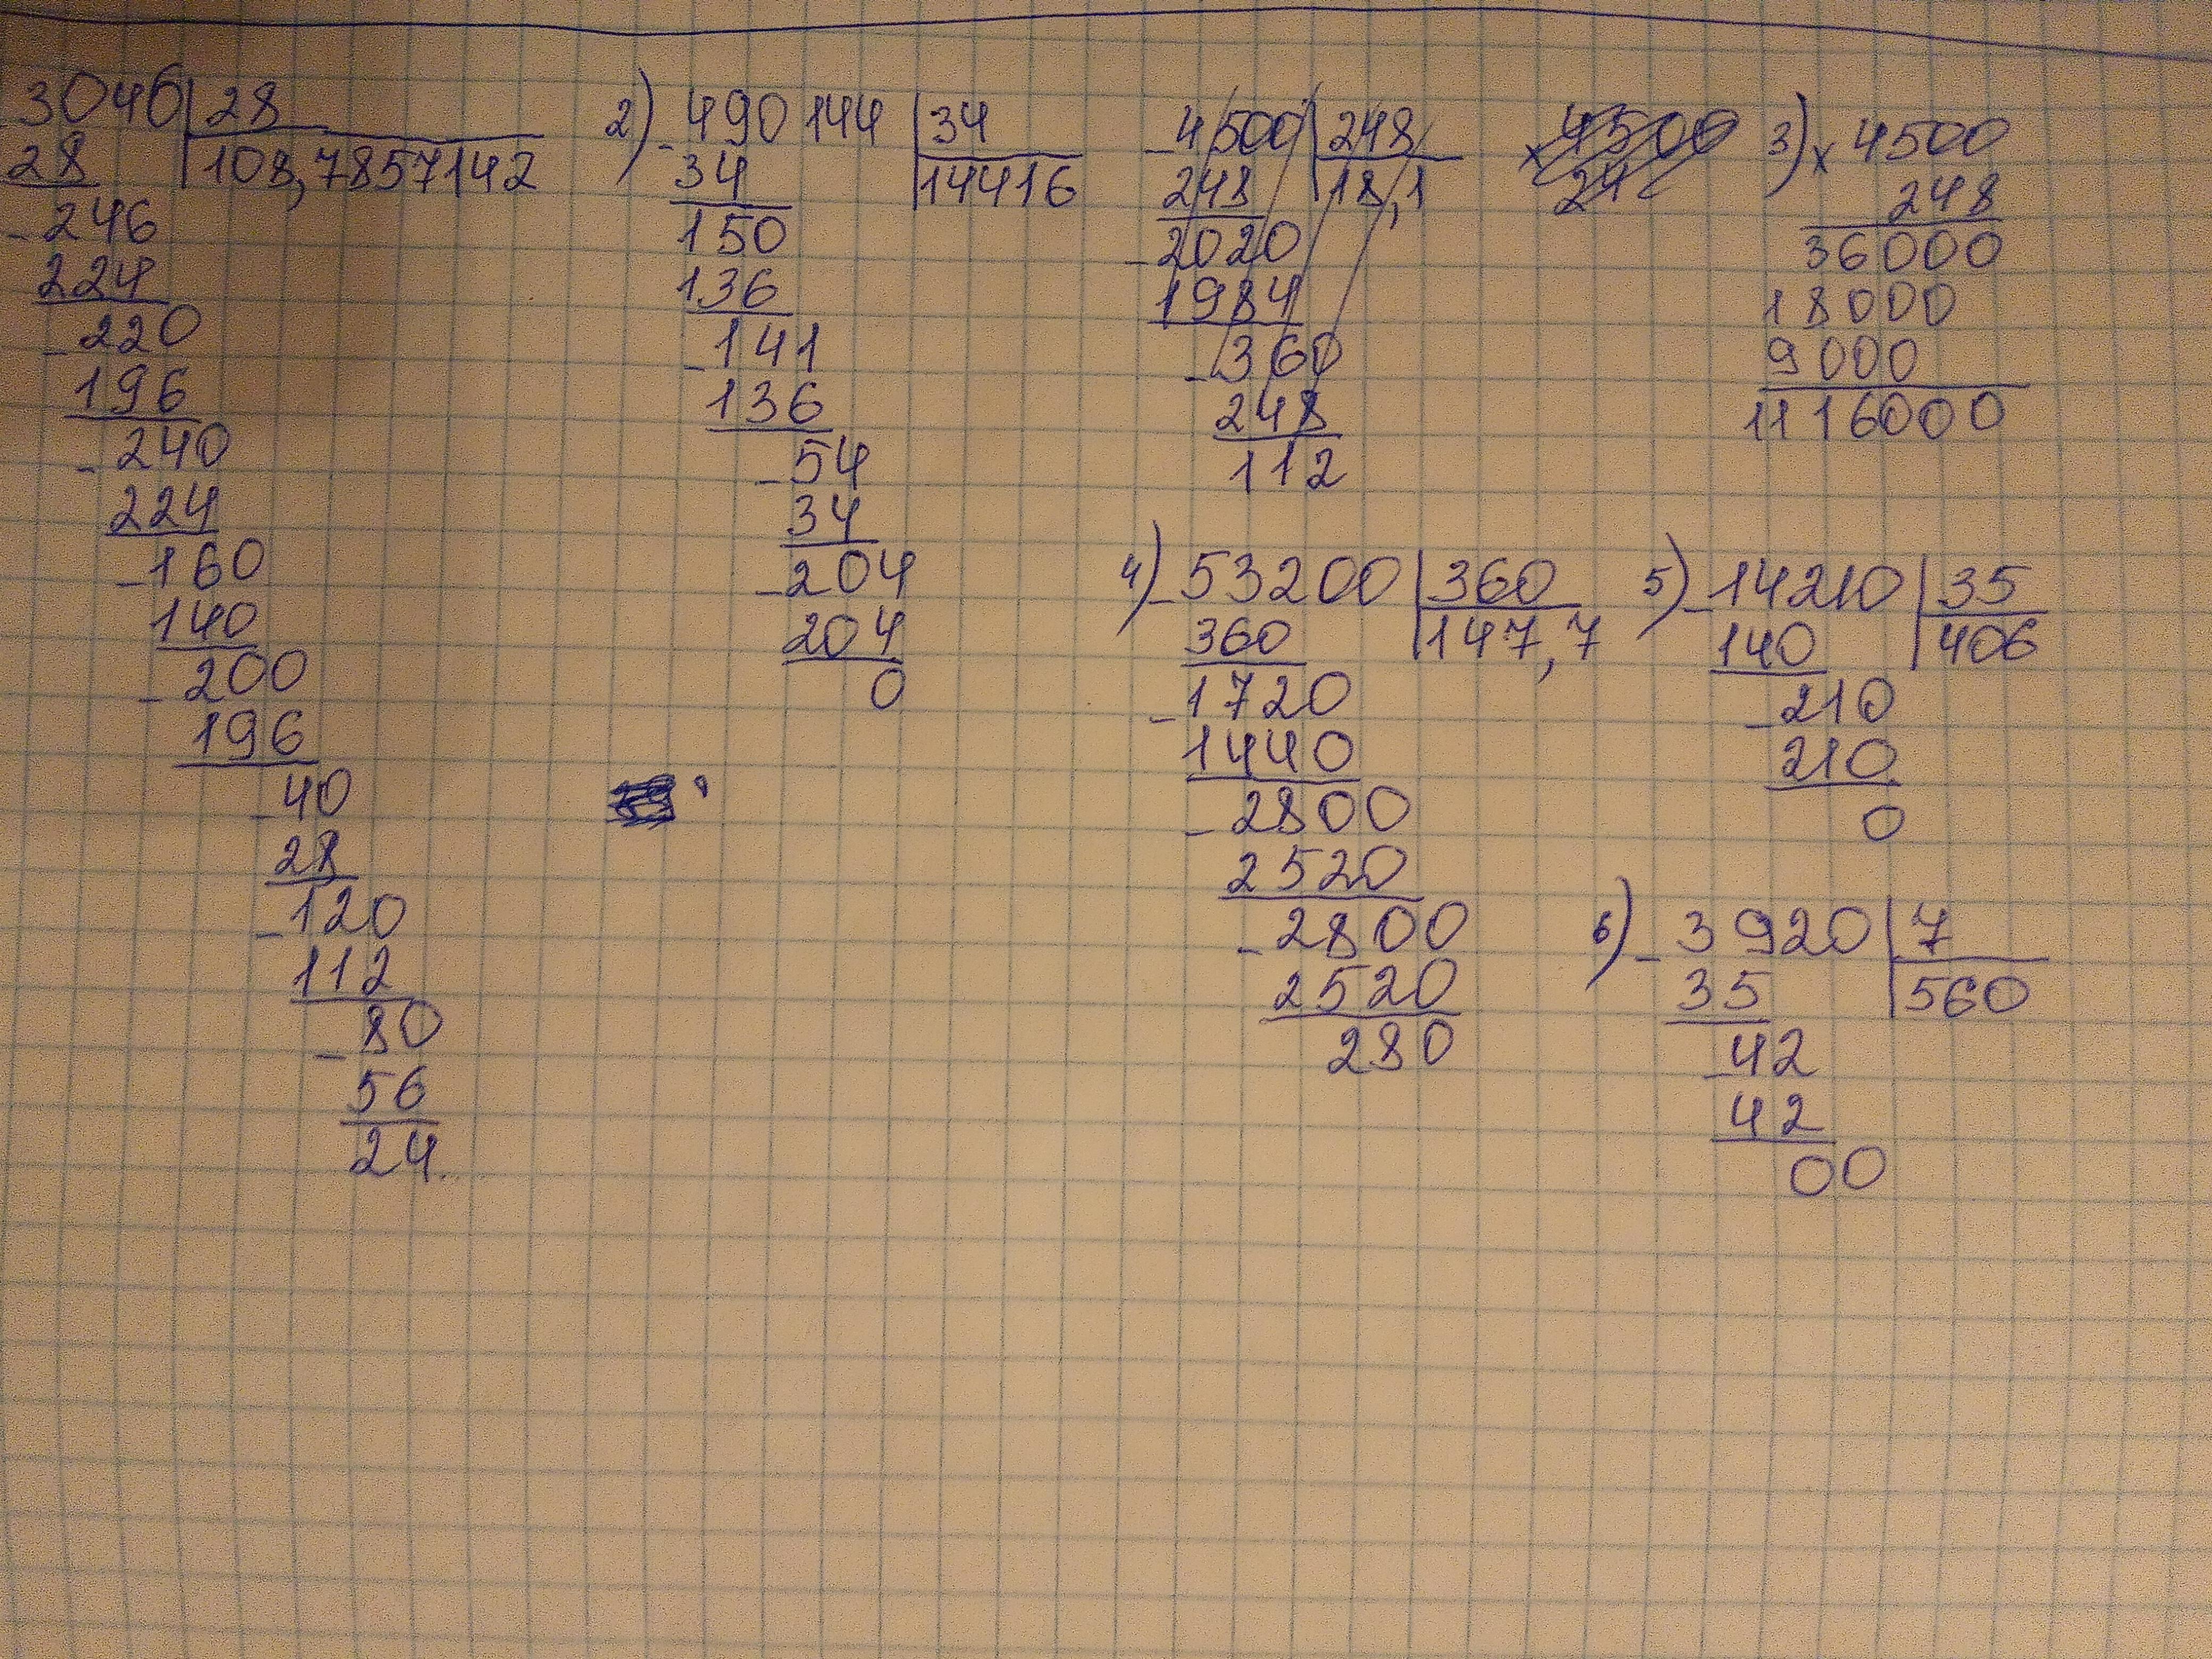 3046 28
28 108,7857142
- 246
224
- 220
196
- 240
224
- 160
140
- 200
196
- 40
28
- 120
112
- 80
56
24...
2) - 490144 34
34 14416
150
136
- 141
136
- 54
34
- 204
204
0
- 4500 248
248 18,1
- 2020
1984
- 360
248
112
× 4500
3) × 4500
248
36000
18000
9000
1116000
4) - 53200 360
360 147,7
- 1720
1440
- 2800
2520
- 2800
2520
280
5) - 14210 35
140 406
- 210
210
0
6) - 3920 7
35 560
- 42
42
00